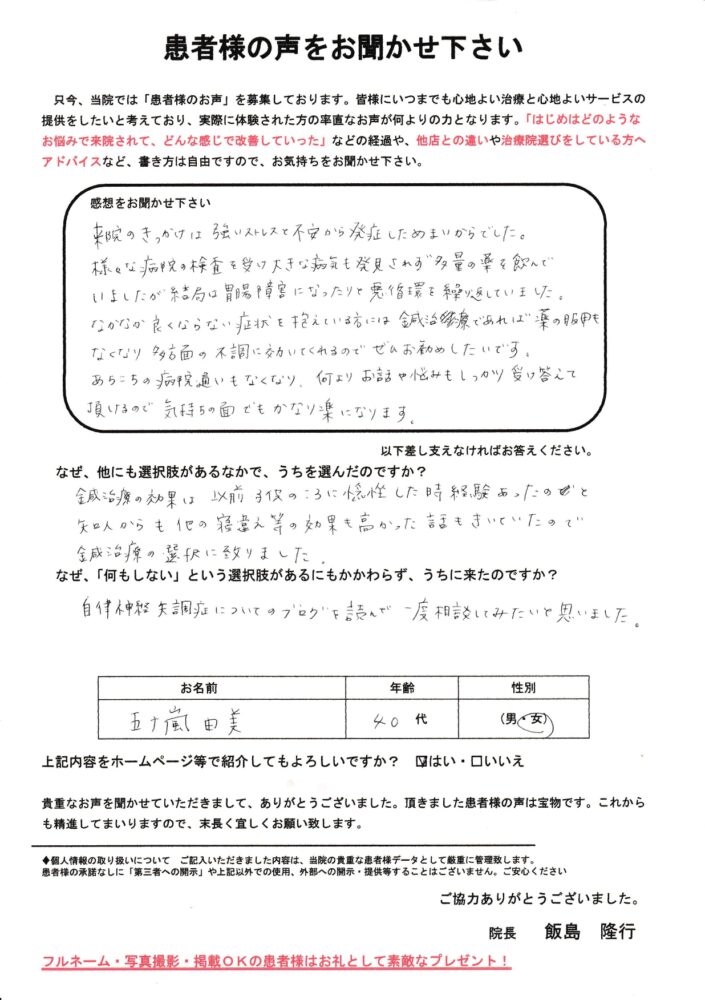 患者様の声をお聞かせ下さい
只今、当院では「患者様のお声」を募集しております。皆様にいつまでも心地よい治療と心地よいサービスの
提供をしたいと考えており、実際に体験された方の率直なお声が何よりの力となります。「はじめはどのような
お悩みで来院されて、どんな感じで改善していった」などの経過や、他店との違いや治療院選びをしている方へ
アドバイスなど、書き方は自由ですので、お気持ちをお聞かせ下さい。
感想をお聞かせ下さい
来院のきっかけは強いストレスと不安から発症しためまいからでした。
様々な病院の検査を受け大きな病気も発見されず多量の薬を飲んで
いましたが結局は胃腸障害になったりと悪循環を繰り返していました。
なかなか良くならない症状を抱えている方には鍼治療であれば薬の服用も
なくなり多方面の不調に効いてくれるのでぜひお勧めしたいです。
あちこちの病院通いもなくなり、何よりお話や悩みもしっかり受け答えて
頂けるので気持ちの面でもかなり楽になります。
以下差し支えなければお答えください。
なぜ、他にも選択肢があるなかで、うちを選んだのですか？
鍼治療の効果は以前子供のころに捻挫した時経験あったのと
知人からも他の寝違え等の効果も高かった話もきいていたので
鍼治療の選択に致りました。
なぜ、「何もしない」という選択肢があるにもかかわらず、うちに来たのですか？
自律神経失調症についてのブログを読んで一度相談してみたいと思いました。
お名前 年齢 性別
五十嵐由美 40 代 （男・女）
上記内容をホームページ等で紹介してもよろしいですか？ ☑はい・□いいえ
貴重なお声を聞かせていただきまして、ありがとうございました。頂きました患者様の声は宝物です。これから
も精進してまいりますので、末長く宜しくお願い致します。
◆個人情報の取り扱いについて ご記入いただきました内容は、当院の貴重な患者様データとして厳重に管理致します。
患者様の承諾なしに「第三者への開示」や上記以外での使用、外部への開示・提供等することはございません。ご安心ください
ご協力ありがとうございました。
院長 飯島 隆行
フルネーム・写真撮影・掲載ＯＫの患者様はお礼として素敵なプレゼント！